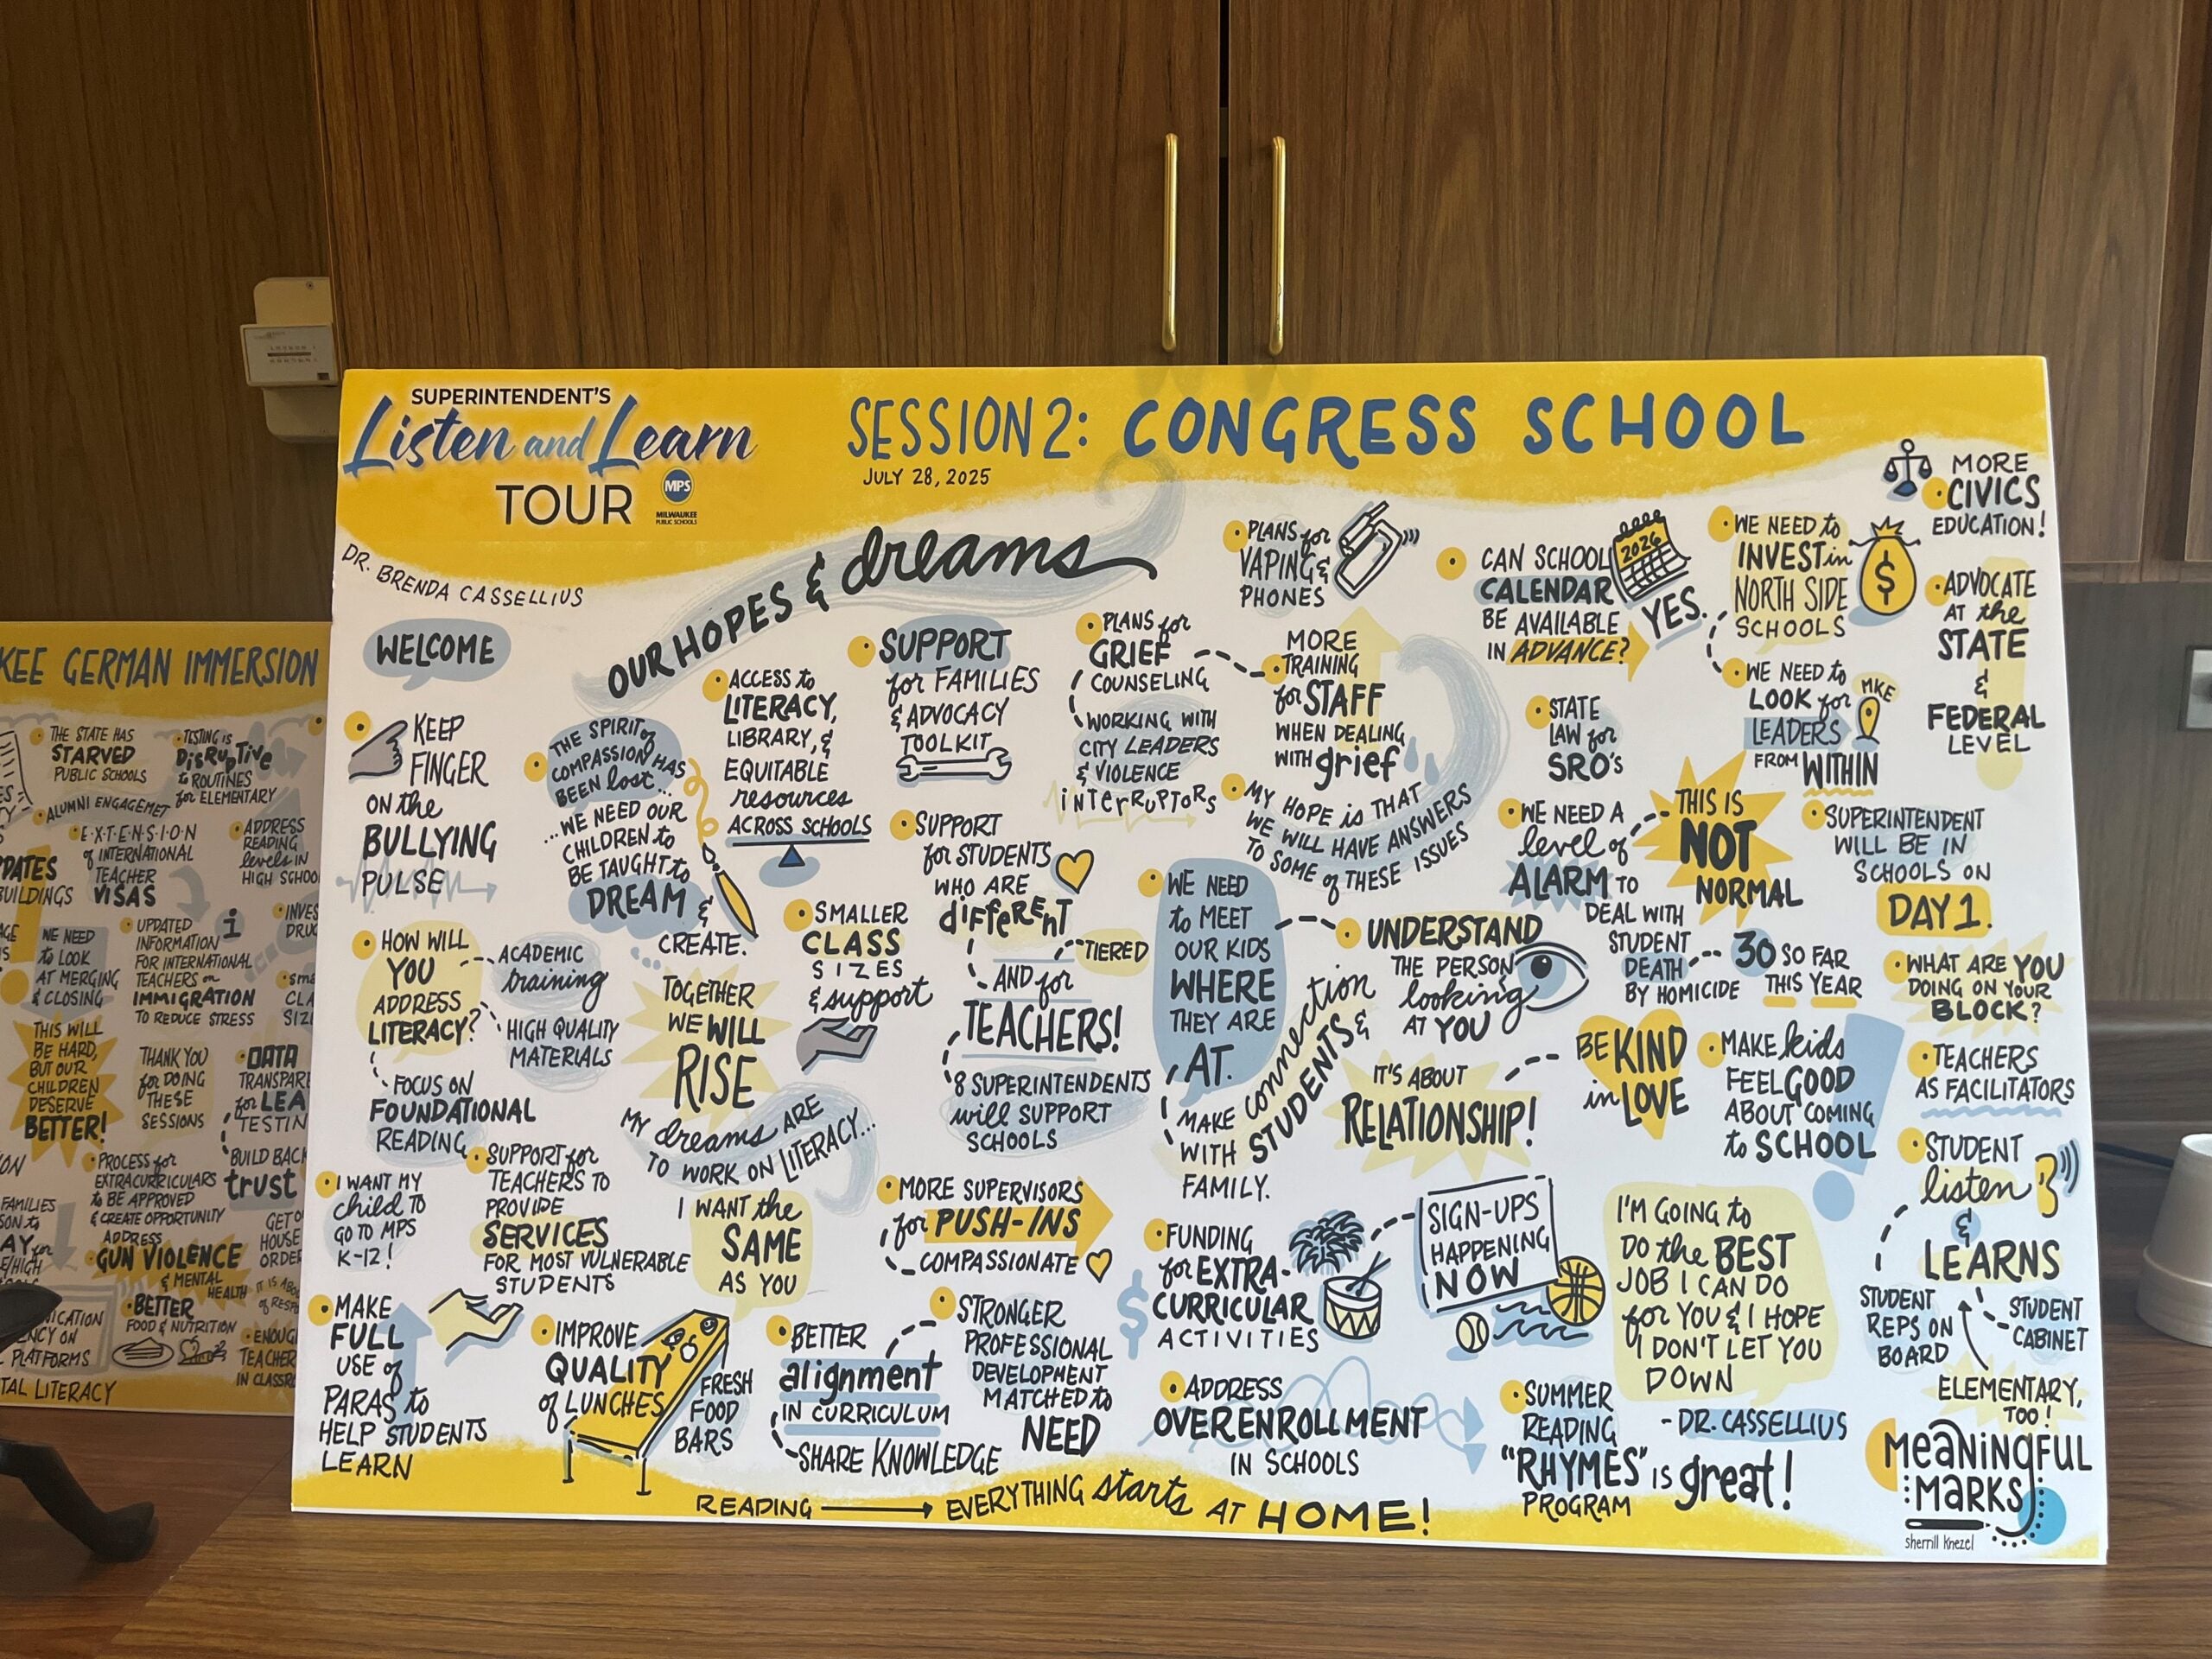 SUPERINTENDENT'S
Listen and Learn
TOUR
MPS
MILWAUKEE
PUBLIC SCHOOLS
SESSION 2: CONGRESS SCHOOL
JULY 28, 2025
DR. BRENDA CASSELLIUS
OUR HOPES & dreams
WELCOME
KEEP
FINGER
ON the
BULLYING
PULSE
THE SPIRIT of
COMPASSION HAS
BEEN lost...
...WE NEED OUR
CHILDREN to
BE TAUGHT to
DREAM &
CREATE.
ACCESS to
LITERACY,
LIBRARY, &
EQUITABLE
resources
ACROSS SCHOOLS
SUPPORT
for FAMILIES
& ADVOCACY
TOOLKIT
PLANS for
GRIEF
COUNSELING
WORKING WITH
CITY LEADERS
& VIOLENCE
interruptors
PLANS for
VAPING &
PHONES
MORE
TRAINING
for STAFF
WHEN DEALING
WITH grief
MY HOPE is THAT
WE WILL HAVE ANSWERS
TO SOME of THESE ISSUES
CAN SCHOOL
CALENDAR
BE AVAILABLE
IN ADVANCE?
2026
YES.
WE NEED to
INVEST in
NORTH SIDE
SCHOOLS
$
WE NEED to
LOOK for
LEADERS
FROM WITHIN
MKE
MORE
CIVICS
EDUCATION!
ADVOCATE
AT the
STATE
&
FEDERAL
LEVEL
STATE
LAW for
SRO's
WE NEED A
level of
ALARM TO
DEAL WITH
STUDENT
DEATH
BY HOMICIDE
THIS IS
NOT
NORMAL
30 SO FAR
THIS YEAR
SUPERINTENDENT
WILL BE IN
SCHOOLS ON
DAY 1.
WHAT ARE YOU
DOING ON YOUR
BLOCK?
HOW WILL
YOU
ADDRESS
LITERACY?
ACADEMIC
training
HIGH QUALITY
MATERIALS
FOCUS ON
FOUNDATIONAL
READING
TOGETHER
WE WILL
RISE
SMALLER
CLASS
SIZES
& support
SUPPORT
for STUDENTS
WHO ARE
different
TIERED
AND for
TEACHERS!
8 SUPERINTENDENTS
will SUPPORT
SCHOOLS
WE NEED
to MEET
OUR KIDS
WHERE
THEY ARE
AT.
MAKE connection
WITH STUDENTS &
FAMILY.
UNDERSTAND
THE PERSON
looking
AT YOU
IT'S ABOUT
RELATIONSHIP!
BE KIND
in LOVE
MAKE kids
FEEL GOOD
ABOUT COMING
to SCHOOL
TEACHERS
AS FACILITATORS
STUDENT
listen
&
LEARNS
STUDENT
REPS ON
BOARD
STUDENT
CABINET
ELEMENTARY,
TOO!
MY dreams ARE
TO WORK ON LITERACY...
I WANT MY
child TO
GO TO MPS
K-12!
SUPPORT for
TEACHERS TO
PROVIDE
SERVICES
FOR MOST VULNERABLE
STUDENTS
I WANT the
SAME
AS YOU
MORE SUPERVISORS
for PUSH-INS
COMPASSIONATE
FUNDING
for EXTRA-
CURRICULAR
ACTIVITIES
$
SIGN-UPS
HAPPENING
NOW
I'M GOING to
DO the BEST
JOB I CAN DO
for YOU & I HOPE
I DON'T LET YOU
DOWN
- DR. CASSELLIUS
MAKE
FULL
USE of
PARAS to
HELP STUDENTS
LEARN
IMPROVE
QUALITY
of LUNCHES
FRESH
FOOD
BARS
BETTER
alignment
IN CURRICULUM
SHARE KNOWLEDGE
STRONGER
PROFESSIONAL
DEVELOPMENT
MATCHED to
NEED
ADDRESS
OVERENROLLMENT
IN SCHOOLS
SUMMER
READING
"RHYMES" is great!
PROGRAM
READING → EVERYTHING starts AT HOME!
MeaningFUL
MARKS
sherrill knezel
KEE GERMAN IMMERSION
THE STATE HAS
STARVED
PUBLIC SCHOOLS
TESTING is
DISRUPTIVE
to ROUTINES
for ELEMENTARY
ALUMNI ENGAGEMET
E·X·T·E·N·S·I·O·N
of INTERNATIONAL
TEACHER
VISAS
ADDRESS
READING
levels IN
HIGH SCHOO
DATES
BUILDINGS
WE NEED
to LOOK
AT MERGING
& CLOSING
UPDATED
INFORMATION
FOR INTERNATIONAL
TEACHERS on
IMMIGRATION
TO REDUCE STRESS
i
INVES
DRUG
sma
CLA
SIZ
THIS WILL
BE HARD,
BUT OUR
CHILDREN
DESERVE
BETTER!
THANK YOU
for DOING
THESE
SESSIONS
DATA
TRANSPARE
for LEA
TESTIN
BUILD BACK
trust
PROCESS for
EXTRACURRICULARS
to BE APPROVED
& CREATE OPPORTUNITY
FAMILIES
SON to
AY for
E/HIGH
ADDRESS
GUN VIOLENCE
& MENTAL
HEALTH
GET O
HOUSE
ORDE
IT IS ABO
of RESP
BETTER
FOOD & NUTRITION
ICATION
NCY ON
PLATFORMS
ENOUG
TEACHER
IN CLASSR
TAL LITERACY